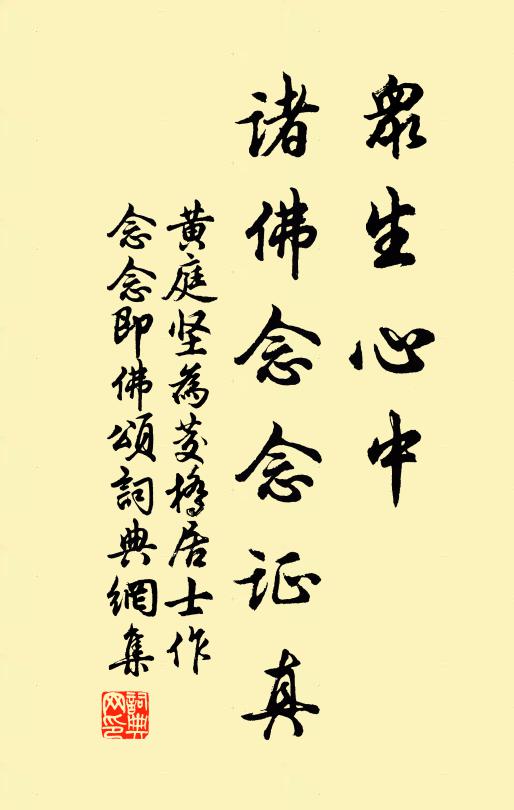 眾生心中
诸佛念念证真
黄庭坚為茭橋居士作
念念即佛頌詞典網集
詞典网印